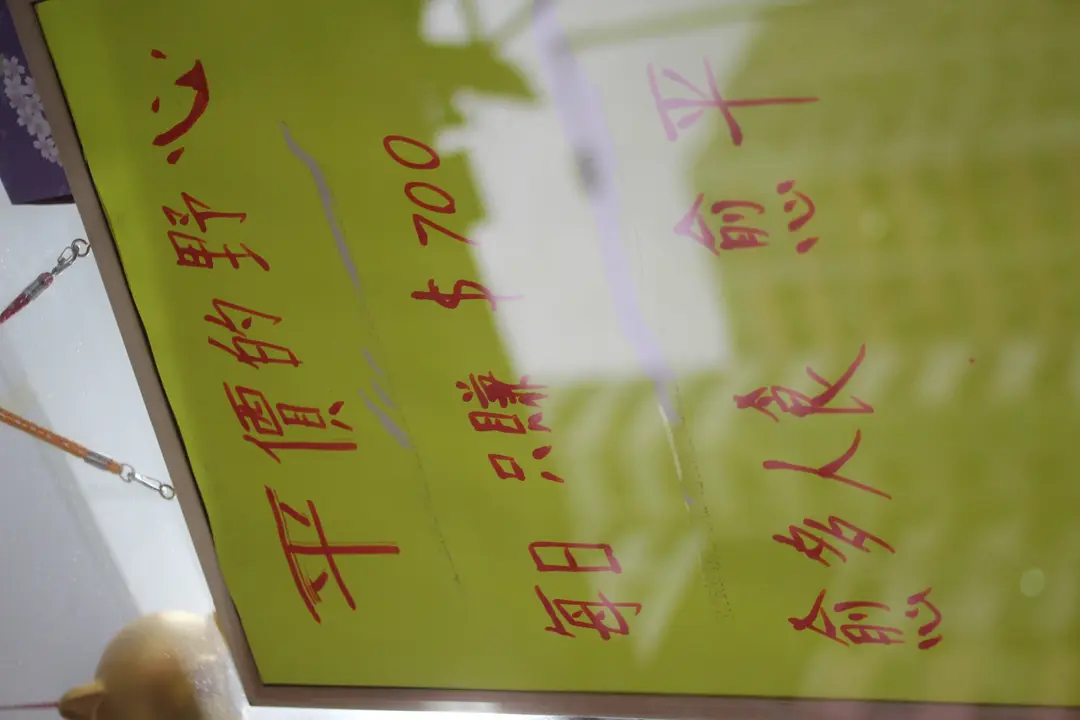 平價的野心
每日只賺 $700
愈多人食 愈平